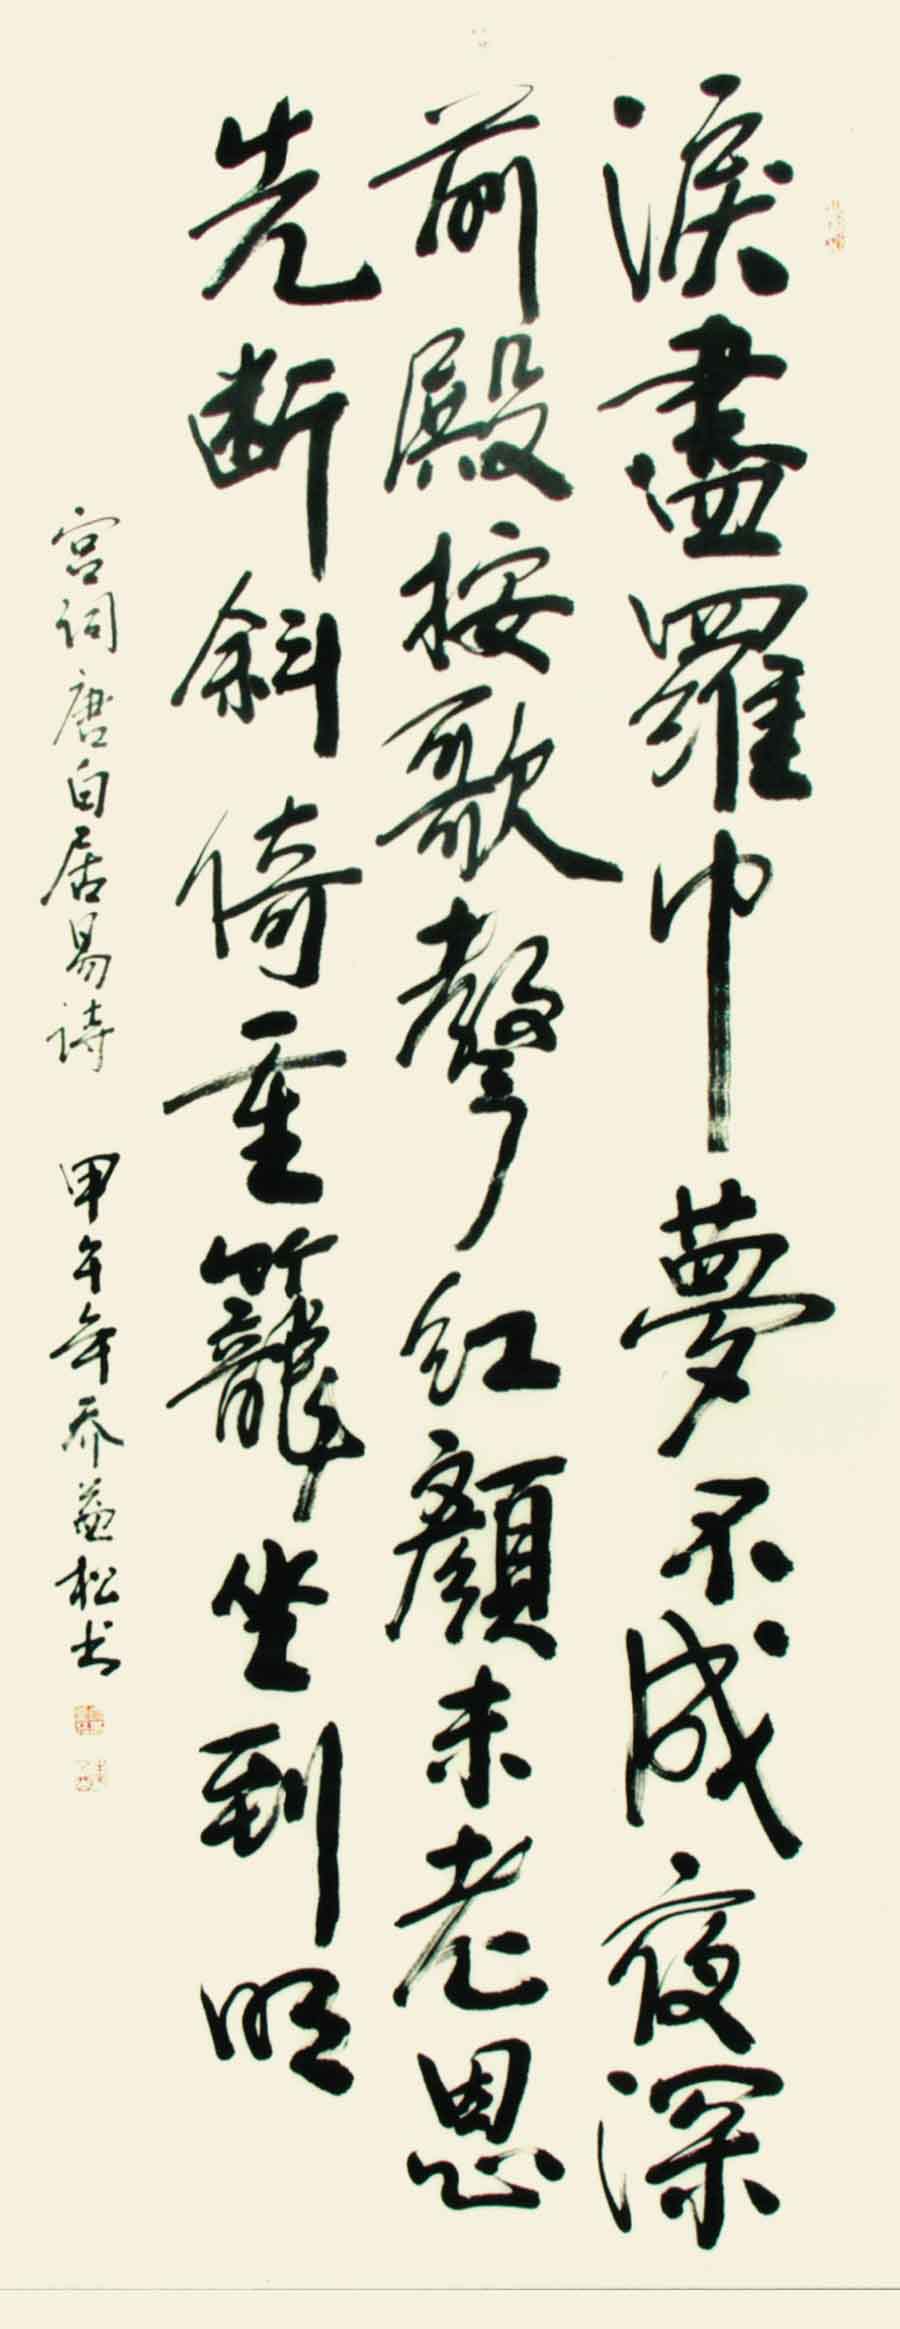 淚盡羅巾夢不成夜深
前殿按歌聲紅顏未老恩
先断斜倚重籠坐到明
宫词唐白居易诗 甲午年乔益松书